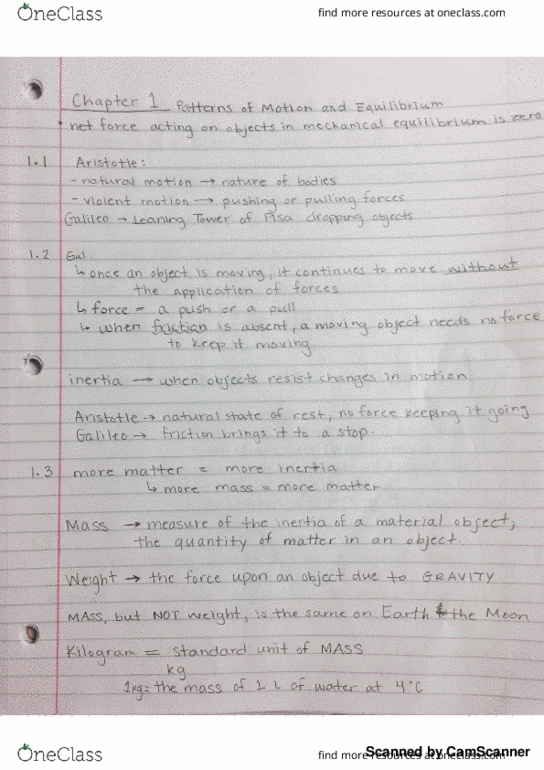 OneClass
find more resources at oneclass.com
Chapter 1 Patterns of Motion and Equilibrium
• net force acting on objects in mechanical equilibrium is zero
1.1 Aristotle:
- natural motion → nature of bodies
- violent motion → pushing or pulling forces
Galileo → Leaning Tower of Pisa dropping objects
1.2 Gal.
↳ once an object is moving, it continues to move without
the application of forces
↳ force = a push or a pull
↳ when friction is absent, a moving object needs no force
to keep it moving
inertia → when objects resist changes in motion
Aristotle → natural state of rest, no force keeping it going
Galileo → friction brings it to a stop.
1.3 more matter = more inertia
↳ more mass = more matter
Mass → measure of the inertia of a material object;
the quantity of matter in an object
Weight → the force upon an object due to GRAVITY
MASS, but NOT weight, is the same on Earth & the Moon
Kilogram = standard unit of MASS
kg
1kg = the mass of 1 L of water at 4°C
OneClass
find more resources at oneclass.com
Scanned by CamScanner